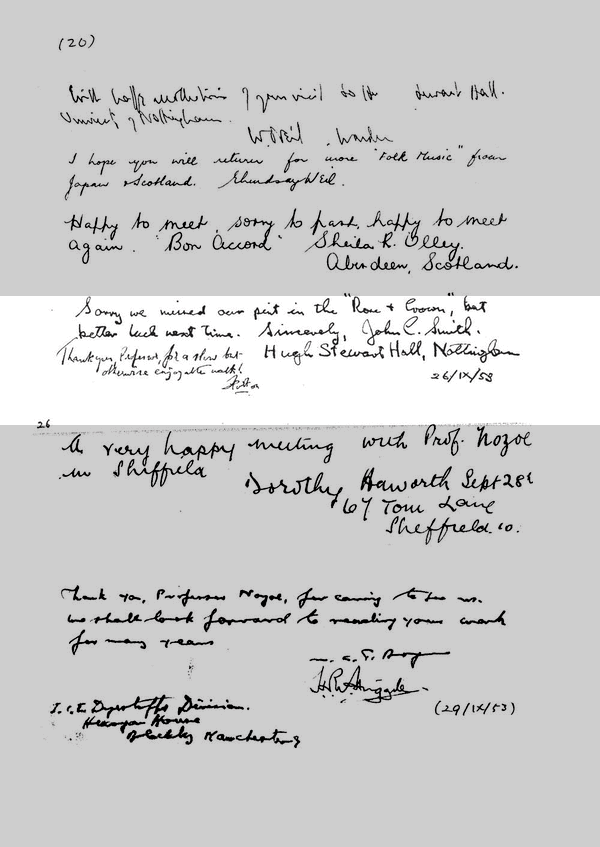 (20)
With happy recollections of your visit to Hu Stewart Hall.
University of Nottingham.
Warden
I hope you will return for more "Folk Music" from
Japan & Scotland.
Happy to meet, sorry to part, happy to meet
again. "Bon Accord" Sheila R. Olley.
Aberdeen, Scotland.
Sorry we missed our pint in the "Rose & Crown", but
better luck next time. Sincerely, John C. Smith.
Hugh Stewart Hall, Nottingham
Thank you, Professor, for a slow but
otherwise enjoyable walk!
26/IX/53
26
A very happy meeting with Prof. Nozoe
in Sheffield
Dorothy Haworth Sept 28t
67 Tom Lane
Sheffield. 10.
Thank you, Professor Nozoe, for coming to see us.
We shall look forward to reading your work
for many years
I.C.I. Dyestuffs Division.
Hexagon House
Blackley Manchester 9
(29/IX/53)